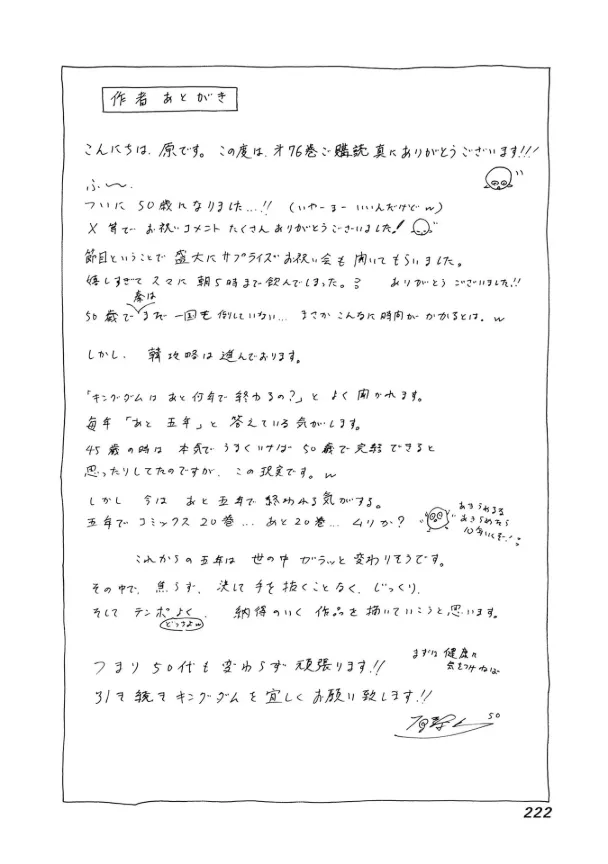 作者あとがき
こんにちは、原です。この度は、才76巻ご購読真にありがとうございます!!!
ふ〜〜、
ついに50歳になりました…!! (いやーまーいいんだけどw)
X等でお祝いコメントたくさんありがとうございました!
節目ということで盛大にサプライズお祝い会も開いてもらいました。
嬉しすぎてスマに朝5時まで飲んでしまった。 ありがとうございました!!
秦は
50歳でまだ一国も倒していない… まさかこんなに時間がかかるとは。w
しかし、韓攻略は進んでおります。
「キングダムはあと何年で終わるの?」とよく聞かれます。
毎年「あと五年」と答えている気がします。
45歳の時は本気でうまくいけば50歳で完結できると
思ったりしてたのですが、この現実です。w
しかし今はあと五年で終われる気がする。
五年でコミックス20巻… あと20巻… ムリか?
あきらめるな
あきらめたら
10年いくぞ!
これからの五年は世の中がラッと変わりそうです。
その中で、焦らず、決して手を抜くことなく、じっくり、
そしてテンポよく、納得のいく作品を描いていこうと思います。
どっちよw
つまり50代も変わらず頑張ります!!
まずは健康に
気をつけねば
引き続きキングダムを宜しくお願い致します!!
50
222